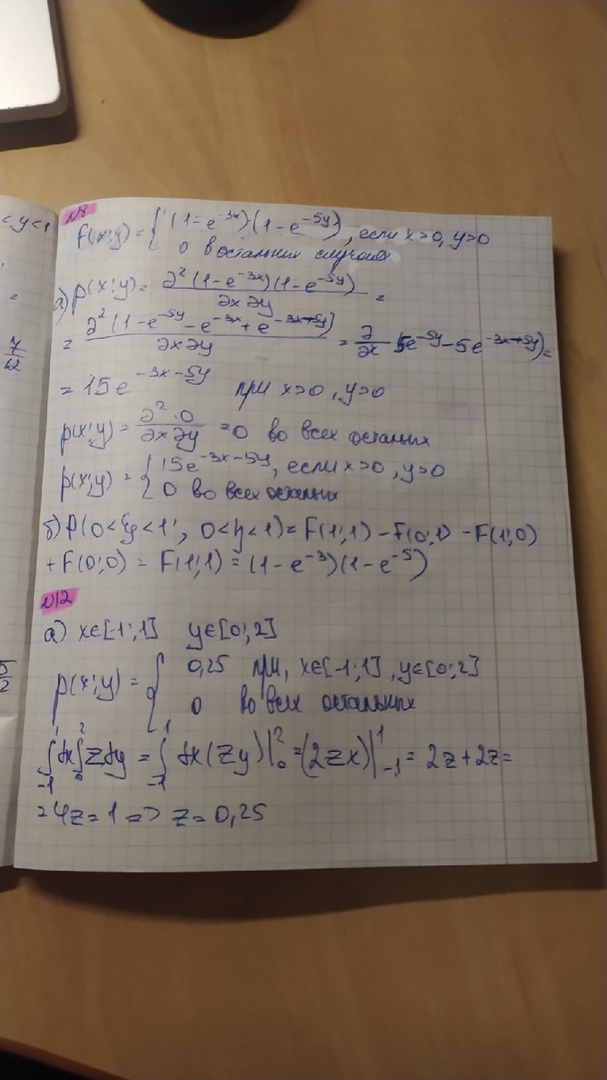 < y < 1
=
7/12
5/2
№8
F(x;y) = { (1-e^{-3x})·(1-e^{-5y}), если x>0, y>0
0 в остальных случаях
а) p(x;y) = ∂²(1-e^{-3x})(1-e^{-5y}) / ∂x∂y =
= ∂²(1-e^{-5y}-e^{-3x}+e^{-3x+5y}) / ∂x∂y = ∂/∂x (5e^{-5y}-5e^{-3x+5y}) =
= 15e^{-3x-5y} при x>0, y>0
p(x;y) = ∂²·0 / ∂x∂y = 0 во всех остальных
p(x;y) = { 15e^{-3x-5y}, если x>0, y>0
0 во всех остальных
б) P(0<ξ<1; 0<η<1) = F(1;1) - F(0;1) - F(1;0)
+ F(0;0) = F(1;1) = (1-e^{-3})(1-e^{-5})
№12
а) x∈[-1;1] y∈[0;2]
p(x;y) = { 0,25 при, x∈[-1;1], y∈[0;2]
0 во всех остальных
∫_{-1}^{1} dx ∫_{0}^{2} z dy = ∫_{-1}^{1} dx (zy)|_{0}^{2} = (2zx)|_{-1}^{1} = 2z + 2z =
= 4z = 1 => z = 0,25